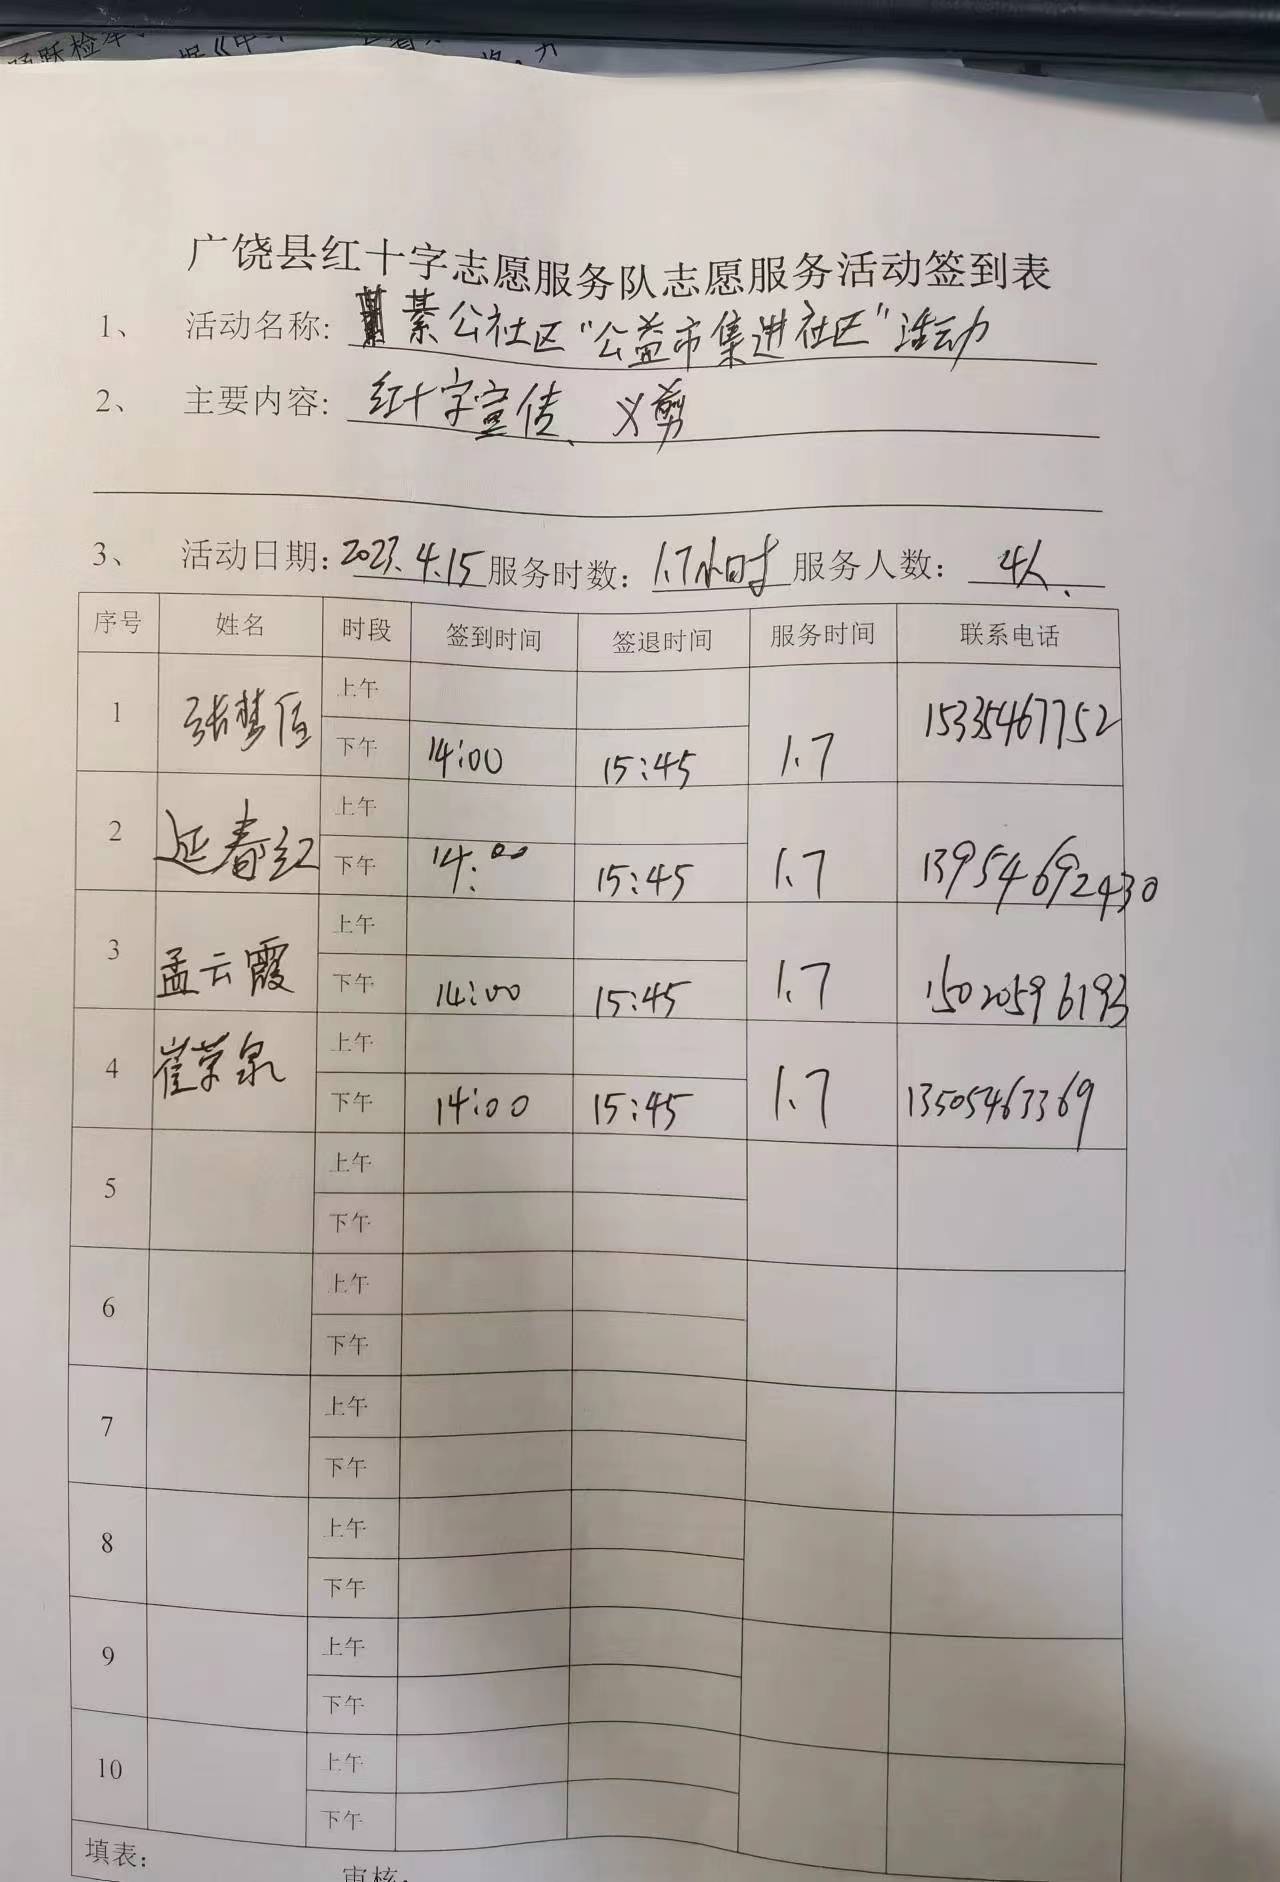 广饶县红十字志愿服务队志愿服务活动签到表
1、 活动名称: 綦公社区“公益市集进社区”活动
2、 主要内容: 红十字宣传、义剪
3、 活动日期: 2023.4.15 服务时数: 1.7小时 服务人数: 4人.
序号 姓名 时段 签到时间 签退时间 服务时间 联系电话
1 张梦 上午
下午 14:00 15:45 1.7 15335467752
2 延春红 上午
下午 14:00 15:45 1.7 13954692430
3 孟云霞 上午
下午 14:00 15:45 1.7 15020596193
4 崔荣泉 上午
下午 14:00 15:45 1.7 13505463369
5 上午
下午
6 上午
下午
7 上午
下午
8 上午
下午
9 上午
下午
10 上午
下午
填表: 审核: